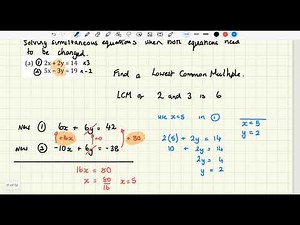 Solving simultaneous equations when both equations need
to be changed.
(a) ① 2x + 2y = 14 x3
② 5x - 3y = 19 x-2
Find a Lowest Common Multiple.
LCM of 2 and 3 is 6
New ① 6x + 6y = 42
New ② -10x + 6y = -38
+80
16x = 80
x = 80/16 x=5
use x=5 in ①
2(5) + 2y = 14
10 + 2y = 14
2y = 4
y = 2
x = 5
y = 2